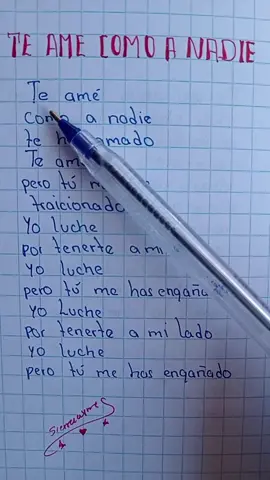 TE AME COMO A NADIE
Te amé
Como a nadie
te amado
Te
pero tú
traicionado
Yo luche
por tenerte a mi
yo luche
pero tú me has engaña
yo Luche
por tenerte a mi lado
yo luche
pero tú me has engañado